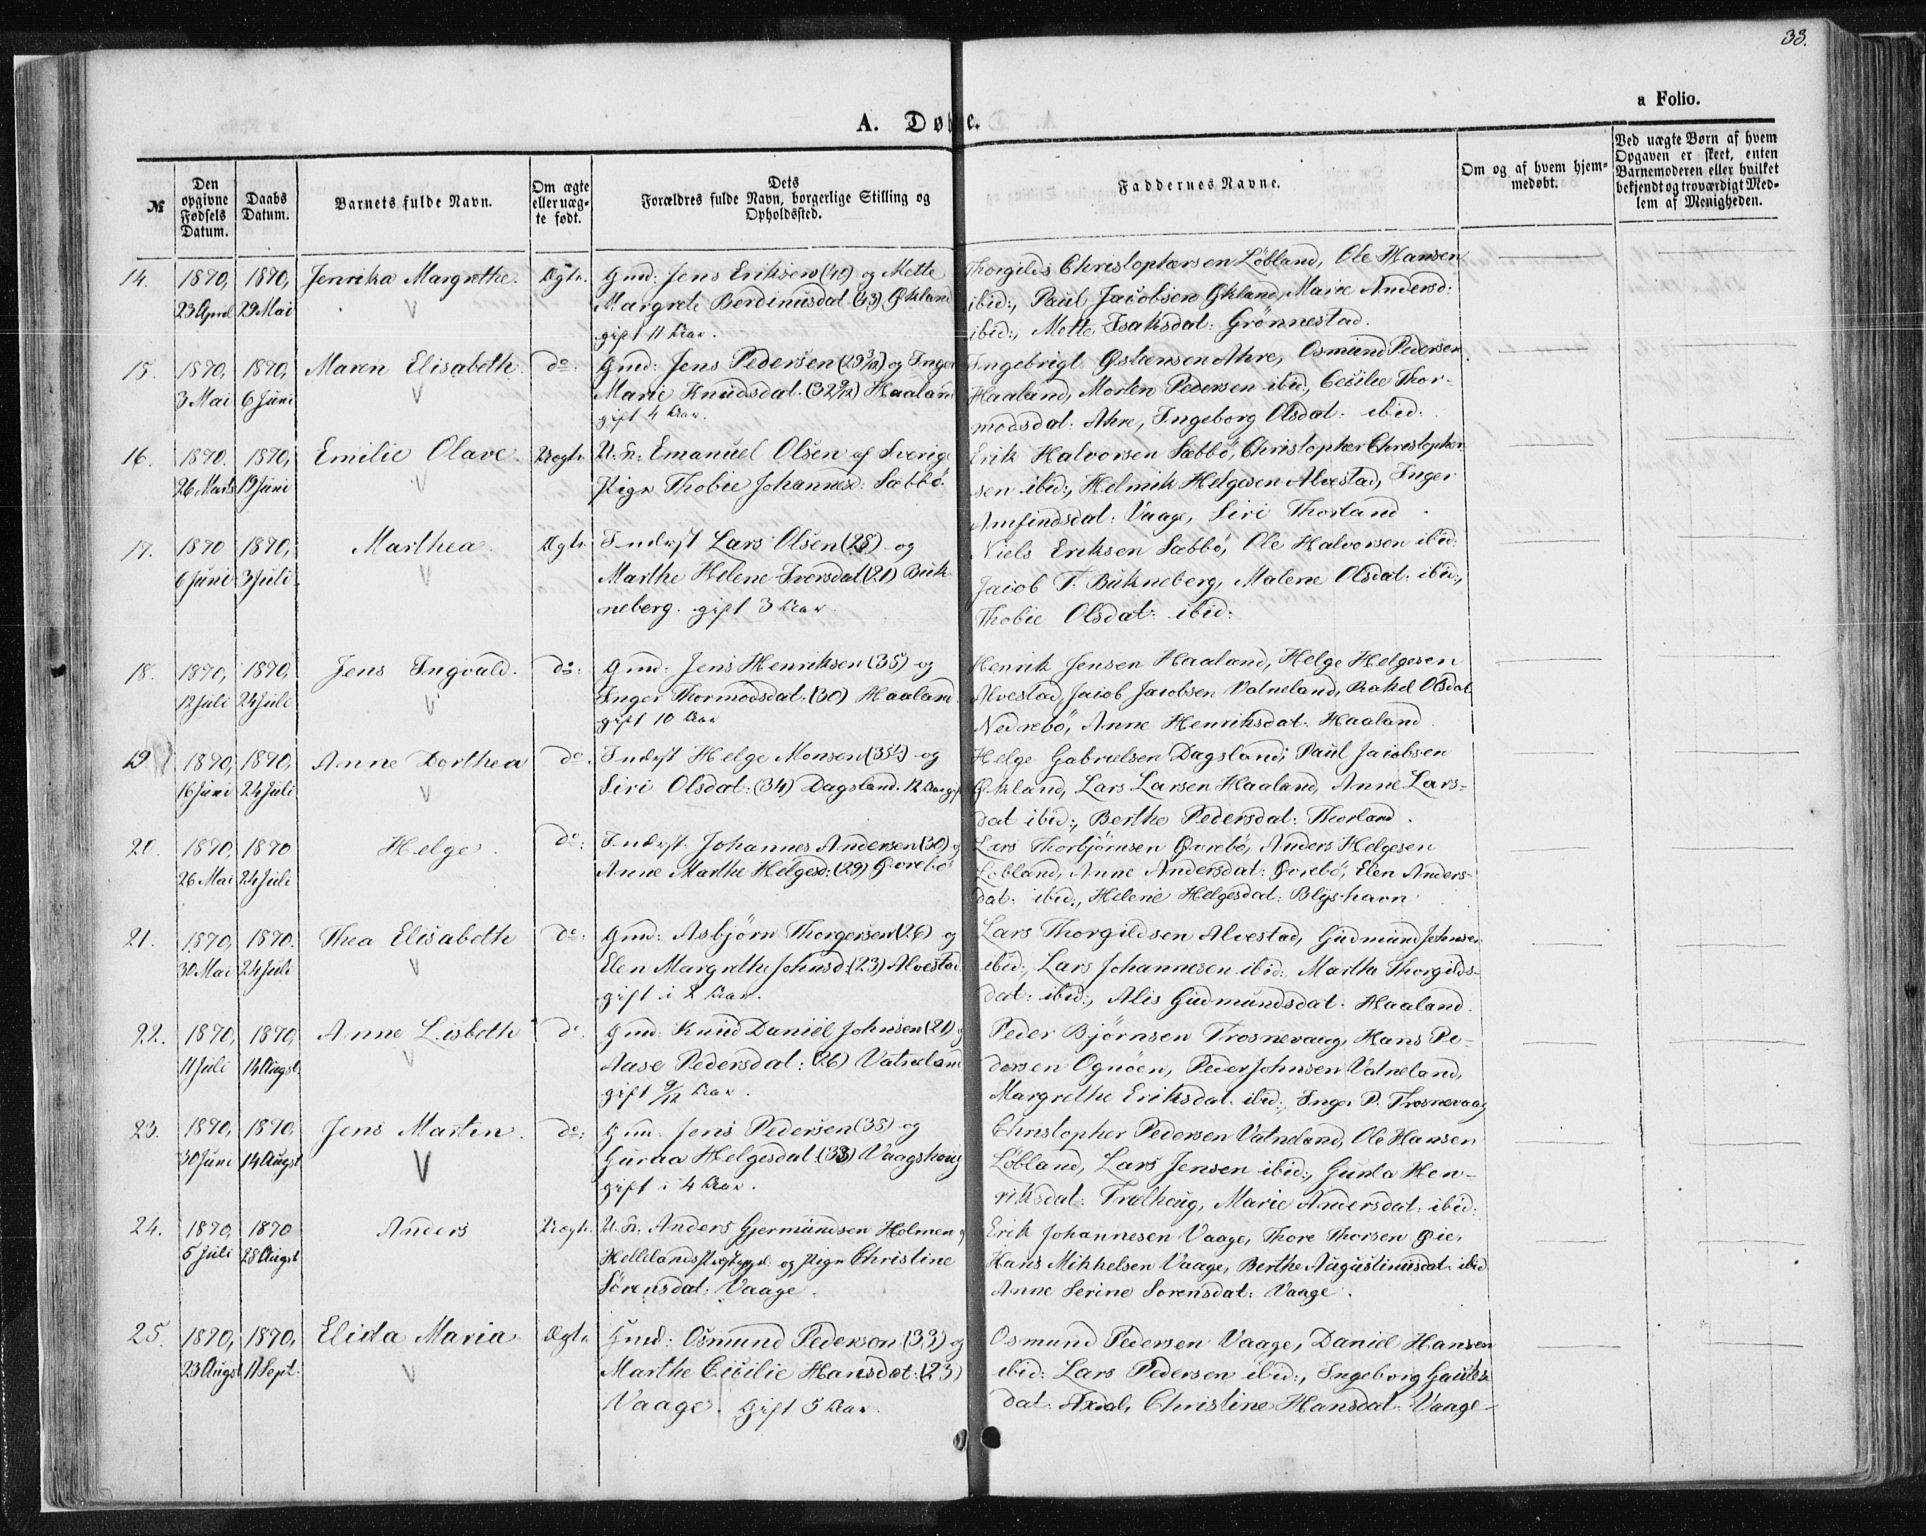 33.
a Folio.
A. Døbte.
№
Den opgivne Fødsels Datum.
Daabs Datum.
Barnets fulde Navn.
Om ægte eller uægte født.
Dets Forældres fulde Navn, borgerlige Stilling og Opholdssted.
Faddernes Navne.
Om og af hvem hjemmedøbt.
Ved uægte Børn af hvem Opgaven er skeet, enten Barnemoderen eller hvilket bekjendt og troværdigt Medlem af Menigheden.
14. 1870, 1870, Jenrika Margrethe. Ægte. Gmd: Jens Eriksen (40) og Mette Thorgilds Christophersen Løbland, Ole Hansen
23 April 29 Mai Margrete Berdinusdat (43) Økland ibid:, Paul Jacobsen Økland, Marie Andersd:
gift 11 Aar. ibid:, Mette Isaksdat: Grönnestad.
15. 1870, 1870, Maren Elisabeth. do: Gmd: Jens Pedersen (29 3/12) og Inger Ingebrigt Østensen Ahre, Osmund Pedersen
3 Mai 6 Juni Marie Knudsdat. (32 9/12) Haaland Haaland, Morten Pedersen ibid:, Cecilie Thor-
gift 4 Aar. modsdat: Ahre, Ingeborg Olsdat. ibid.
16. 1870. 1870, Emilie Olave. Uægte. U.K. Emanuel Olsen af Sverige Erik Halvorsen Sæbbö, Christopher Christopher-
26 Marts 19 Juni Pige Thobie Johannesd: Sæbbö sen ibid:, Helmik Helgesen Alvestad, Inger
Amfindsdat: Vaage, Siri Thorland.
17. 1870 1870, Marthea. Ægte. Inderst Lars Olsen (28) og Niels Eriksen Sæbbö, Ole Halvorsen ibid.
6 Juni 3 Juli Marthe Helene Iversdat (21) Buk- Jacob T. Bukneberg, Malene Olsdat: ibid:,
neberg. gift 3 Aar. Thobie Olsdat: ibid:
18. 1870, 1870, Jens Ingvald. do: Gmd: Jens Henriksen (35) og Henrik Jensen Haaland, Helge Helgesen
12 Juli 24 Juli Inger Thormodsdat: (30) Haaland. Alvestad, Jacob Jacobsen Vatneland, Rakel Olsdat
gift 10 Aar Nedrebö, Anne Henriksdat: Haaland.
19. 1870, 1870, Anne Dorthea do. Inderst Helge Monsen (35½) og Helge Gabrielsen Dagsland, Paul Jacobsen
16 Juni 24 Juli Siri Olsdat: (34) Dagsland. 12 Aar gift Økland, Lars Larsen Haaland, Anne Lars-
dat ibid:, Berthe Pedersdat: Thorland.
20. 1870, 1870 Helge. do: Inderst Johannes Andersen (30) og Lars Thorbjörnsen Øvrebö, Anders Helgesen
26 Mai 24 Juli Anne Marthe Helgesd: (29) Øvrebö Løbland, Anne Andersdat: Øvrebö, Elen Anders-
dat: ibid:, Helene Helgesdat: Blyshavn
21. 1870, 1870. Thea Elisabeth do: Gmd: Asbjörn Thorgersen (26) og Lars Thorgildsen Alvestad, Gudmund Johnsen
30 Mai 24 Juli Elen Margrethe Johnsd: (23) Alvestad ibid:, Lars Johannesen ibid:, Marthe Thorgilds-
gift i 2 Aar. dat: ibid:, Alis Gudmundsdat. Haaland.
22. 1870, 1870, Anne Lisbeth do. Gmd: Knud Daniel Johnsen (21) og Peder Björnsen Trosnevaag, Hans Pe-
11 Juli 14 Augst. Aase Pedersdat: (26) Vatneland dersen Ognöen, Peder Johnsen Vatneland,
gift 9/12 Aar. Margrethe Eriksdat. ibid:, Inger P. Trosnevaag
23. 1870, 1870, Jens Martin. do: Gmd: Jens Pedersen (35) og Christopher Pedersen Vatneland, Ole Hansen
30 Juni 14 Augst Guraa Helgesdat: (33) Vaagshaug Løbland, Lars Jensen ibid:, Gunla Hen-
gift i 4 Aar. riksdat: Trælhaug, Marie Andersdat: ibid:
24. 1870, 1870 Anders Uægte. U.K. Anders Gjermundsen Holmen af Erik Johannesen Vaage, Thore Thorsen Øie,
5 Juli 28 Augst Hellilands Præstegjd. og Pige Christine Hans Mikkelsen Vaage, Berthe Augustinusdat: ibid
Sörensdat: Vaage. Anne Serine Sorensdat: Vaage.
25. 1870, 1870, Elida Maria Ægte. Gmd: Osmund Pedersen (33) og Osmund Pedersen Vaage, Daniel Hansen
23 Augst 11 Sept. Marthe Cicilie Hansdat: (23) ibid: Lars Pedersen ibid:, Ingeborg
Vaage. Gift 5 Aar. dat: Axdal, Christine Hansdat: Vaage